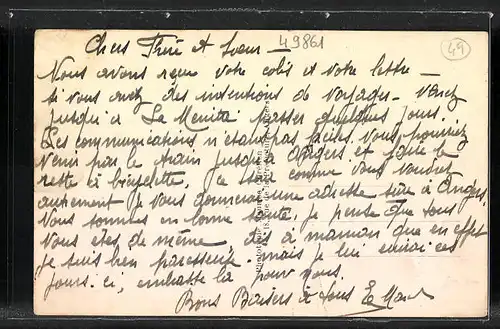 49861
49
Chers Frère et Soeur —
Nous avons reçu votre colis et votre lettre —
si vous avez des intentions de voyager - venez
jusqu'à La Menita passer quelques jours.
Les communications n'étant pas faciles, vous pourriez
venir par le train jusqu'à Angers et faire le
reste à bicyclette. ce sera comme vous voudrez
autrement je vous donnerai une adresse sûre à Angers
Nous sommes en bonne santé, je pense que tous
vous êtes de même, dis à maman que en effet
je suis bien paresseuse. mais je lui écrirai ces
jours. ci, embrasse la pour nous.
Bons Baisers à tous